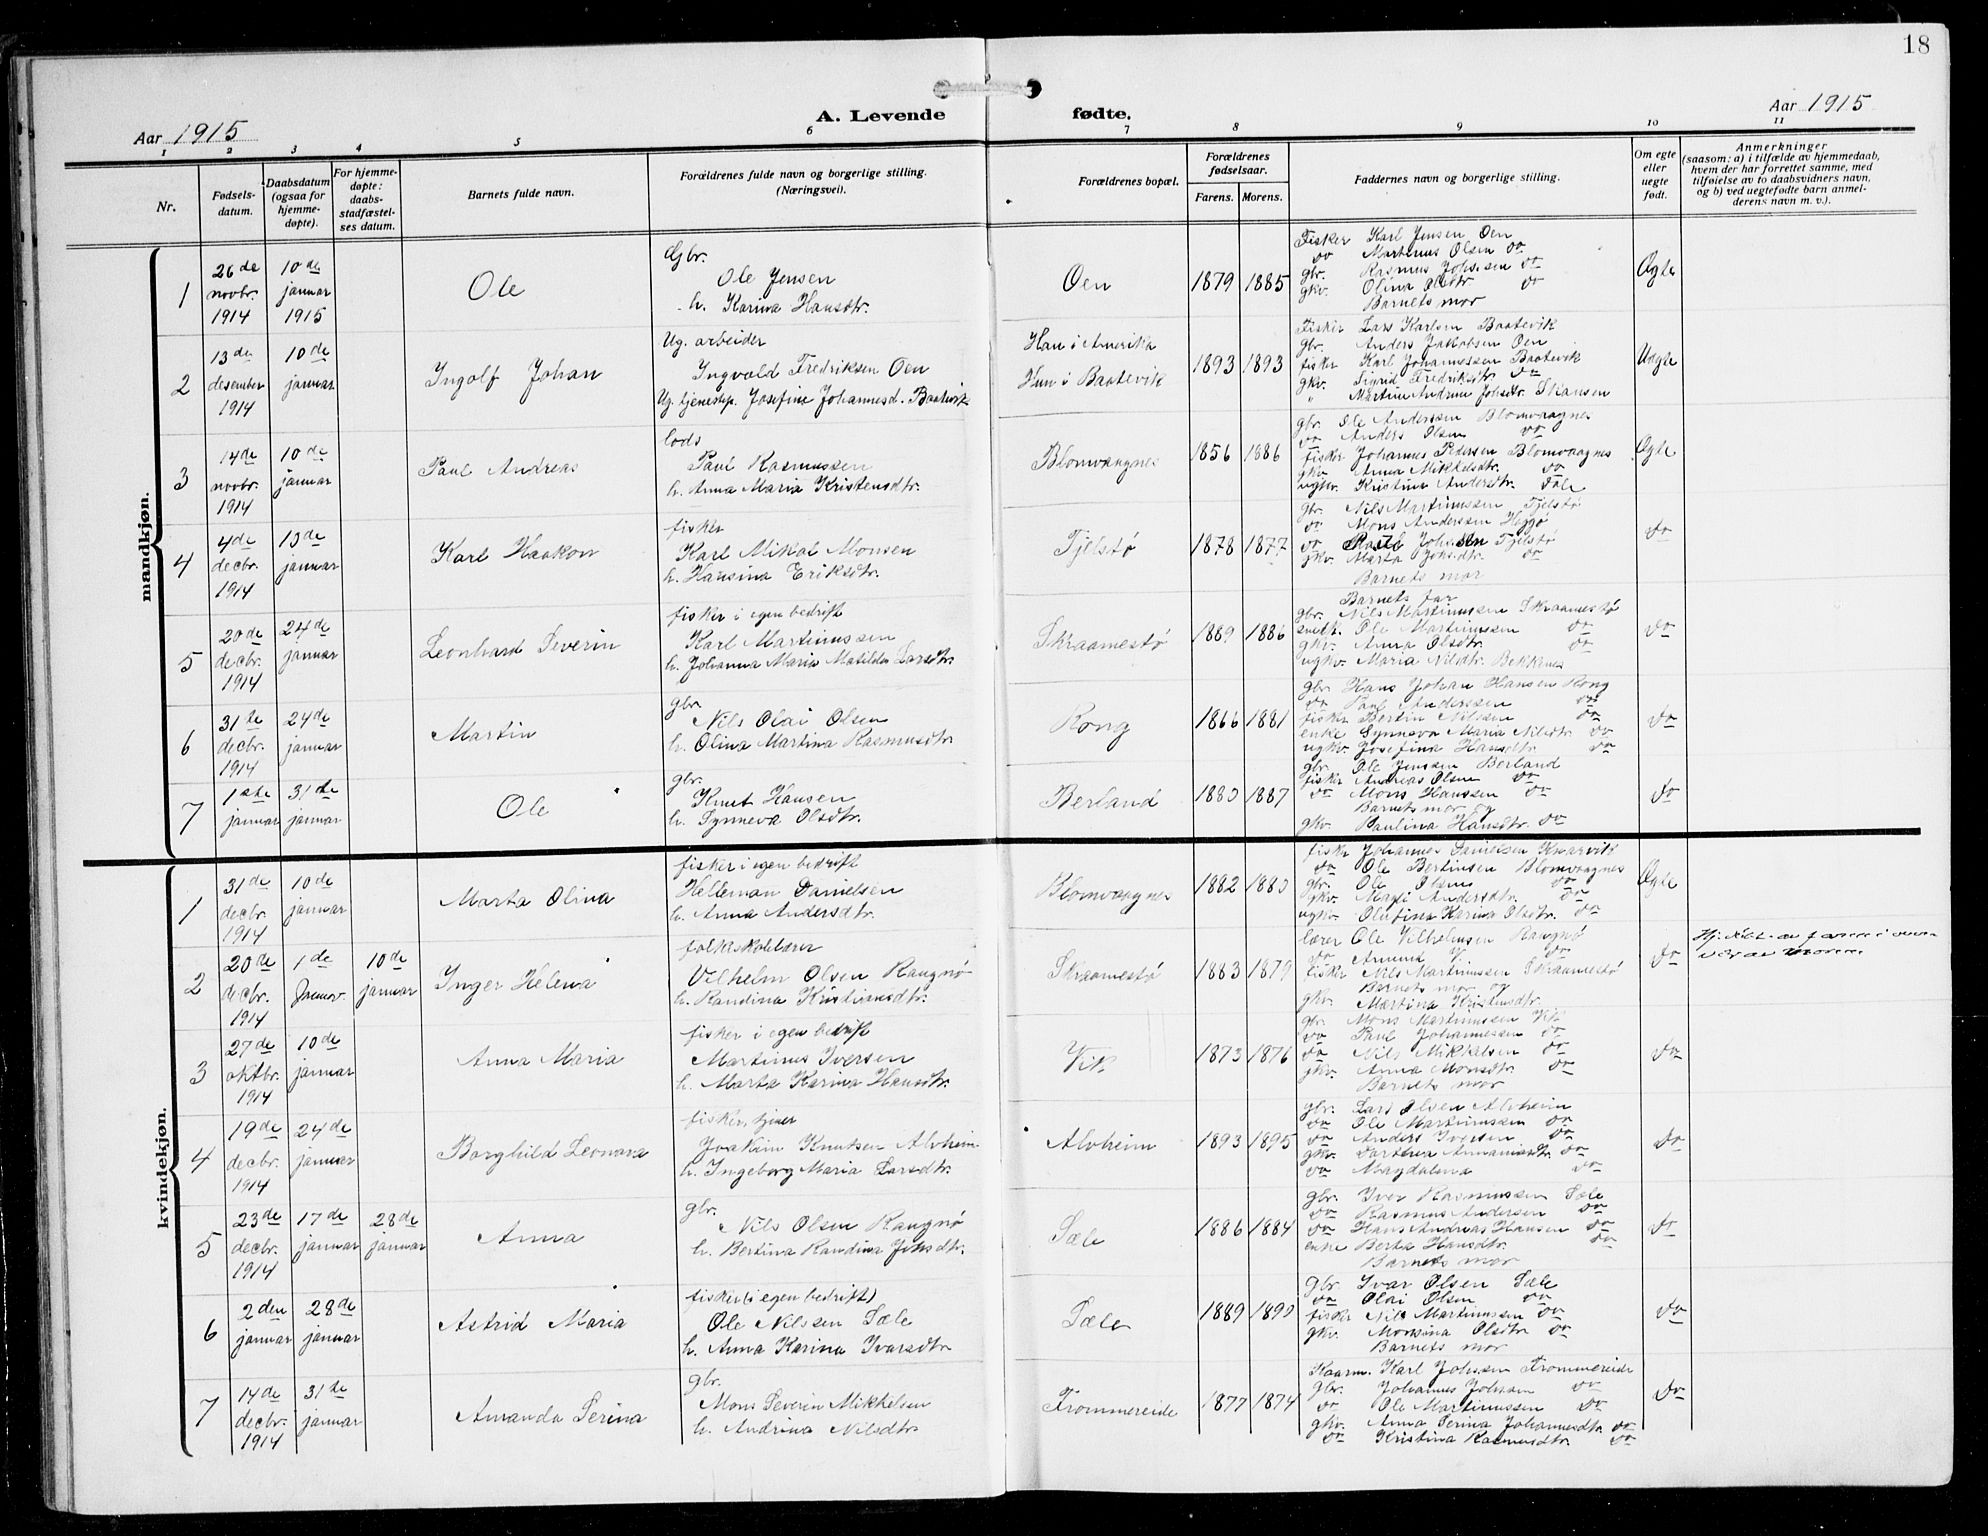 18
Aar 1915
A. Levende
fødte.
Aar 1915
1 2 3 4 5 6 7 8 9 10 11
Nr.
Fødsels-
datum.
Daabsdatum
(ogsaa for
hjemme-
døpte).
For hjemme-
døpte:
daabs-
stadfæstel-
ses datum.
Barnets fulde navn.
Forældrenes fulde navn og borgerlige stilling.
(Næringsvei).
Forældrenes bopæl.
Forældrenes
fødselsaar.
Farens. Morens.
Faddernes navn og borgerlige stilling.
Om egte
eller
uegte
født.
Anmerkninger
(saasom: a) i tilfælde av hjemmedaab,
hvem der har forrettet samme, med
tilføielse av to daabsvidners navn,
og b) ved uegtefødte barn anmel-
derens navn m. v.).
mandkjøn.
1
26de
novbr.
1914
10de
januar
1915
Ole
Gbr.
Ole Jensen
h. Karina Hansdtr.
Oen
1879 1885
Fisker Karl Jensen Oen
do Martinus Olsen do
gbr. Rasmus Johssen do
gkv. Olina Olsdtr do
Barnets mor
Ægte
2
13de
desember
1914
10de
januar
Ingolf Johan
Ug. arbeider
Ingvald Fredriksen Oen
Ug. tjenestep. Josefine Johannesd. Baatevik
Han i Amerika
Hun i Baatevik
1893 1893
Fisker Lars Karlsen Baatevik
gbr. Anders Jakobsen Oen
fisker Karl Johannessen Baatevik
gkv. Sigrid Fredriksdtr do
" Martine Andrine Johsdtr. Skansen
Uægte
3
14de
novbr.
1914
10de
januar
Paul Andreas
lods
Paul Rasmussen
h. Anna Maria Kristensdtr.
Blomvaagnes
1856 1886
gbr. Ole Anderssen Blomvaagnes
do Anders Olsen do
fisker Johannes Pedersen Blomvaagnes
gkv. Anna Mikkelsdtr. do
ugkv. Kristina Andersdtr. Sæle
Ægte
4
4de
decbr.
1914
10de
januar
Karl Haakon
fisker
Karl Mikal Monsen
h. Hansina Eriksdtr.
Tjelstø
1878 1877
gbr. Nils Martinussen Tjelstø
do Mons Anderssen Heggø
do Johssen Tjelstø
gkv. Marta Johsdtr. do
Barnets mor
do
5
20de
decbr.
1914
24de
januar
Leonhard Severin
fisker i egen bedrift
Karl Martinussen
h. Johanna Maria Matilde Larsdtr.
Skraamestø
1889 1886
Barnets far
gbr. Nils Martinussen Skraamestø
snedk. Ole Martinussen do
gkv. Anna Olsdtr. do
ugkv. Maria Nilsdtr. Bekknes
do
6
31te
decbr.
1914
24de
januar
Martin
gbr.
Nils Olai Olsen
h. Olina Martina Rasmusdtr.
Rong
1866 1881
gbr. Hans Johan Hansen Rong
do Paul Anderssen do
fisker Bertin Nilssen do
enke Synneva Maria Nilsdtr do
ugkv. Josefina Hansdtr. do
do
7
1ste
januar
31de
januar
Ole
gbr.
Knut Hansen
h. Synneva Olsdtr.
Berland
1880 1887
gbr. Ole Jenssen Berland
fisker Andreas Olsen do
do Mons Hanssen do
Barnets mor og
gkv. Paulina Hansdtr. do
do
kvindekjøn.
1
31de
decbr.
1914
10de
januar
Marta Olina
fisker i egen bedrift
Helleman Danielsen
h. Anna Andersdtr.
Blomvaagnes
1882 1880
fisker Johannes Danielsen Knarvik
do Ole Bertinsen Blomvaagnes
gbr. Ole Olsen do
gkv. Mari Andersdtr. do
ugkv. Olufina Karina Olsdtr. do
Ægte
2
20de
decbr.
1914
1de
Januar
10de
januar
Inger Helena
folkeskolelærer
Vilhelm Olsen Raugnø
h. Randina Kristiansdtr.
Skraamestø
1883 1879
lærer Ole Vilhelmsen Raugnø
do Amund do
fisker Nils Martinussen Skraamestø
Barnets mor og
gkv. Martina Kristensdtr.
do
Hj. døbt av faren i over-
vær av moren.
3
27de
oktbr.
1914
10de
januar
Anna Maria
fisker i egen bedrift
Martinus Iversen
h. Marta Karina Hansdtr.
Vik
1873 1876
gbr. Mons Martinussen Vik
do Paul Johannessen do
do Nils Mikkelsen do
gkv. Anna Monsdtr. do
Barnets mor
do
4
19de
decbr.
1914
24de
januar
Borghild Leonora
fisker, tjener
Joakim Knutsen Alvheim
h. Ingeborg Maria Larsdtr.
Alvheim
1893 1895
gbr. Lars Olsen Alvheim
do Ole Martinussen do
do Anders Iversen do
gkv. Dorthea Annaniasdtr. do
do Magdalena do
do
5
23de
decbr.
1914
17de
januar
28de
januar
Anna
gbr.
Nils Olsen Raugnø
h. Bertina Randina Johsdtr.
Sæle
1886 1884
gbr. Iver Rasmussen Sæle
do Rasmus Andersen do
do Hans Andreas Hansen do
enke Berta Hansdtr. do
Barnets mor
do
6
2den
januar
28de
januar
Astrid Maria
fisker (i egen bedrift)
Ole Nilssen Sæle
h. Anna Karina Ivarsdtr
Sæle
1889 1890
Gbr. Ivar Olsen Sæle
do Olai Olsen do
fisker Nils Martinussen do
gkv. Monsina Olsdtr do
Barnets mor
do
7
14de
decbr.
1914
31te
januar
Amanda Serina
gbr.
Mons Severin Mikkelsen
h. Andrina Nilsdtr.
Trommereide
1877 1874
Kaarm. Karl Johssen Trommereide
Gbr. Johannes Johssen do
do Ole Martinussen do
gkv. Anna Serina Johannesdtr. do
do Kristina Rasmusdtr. do
do